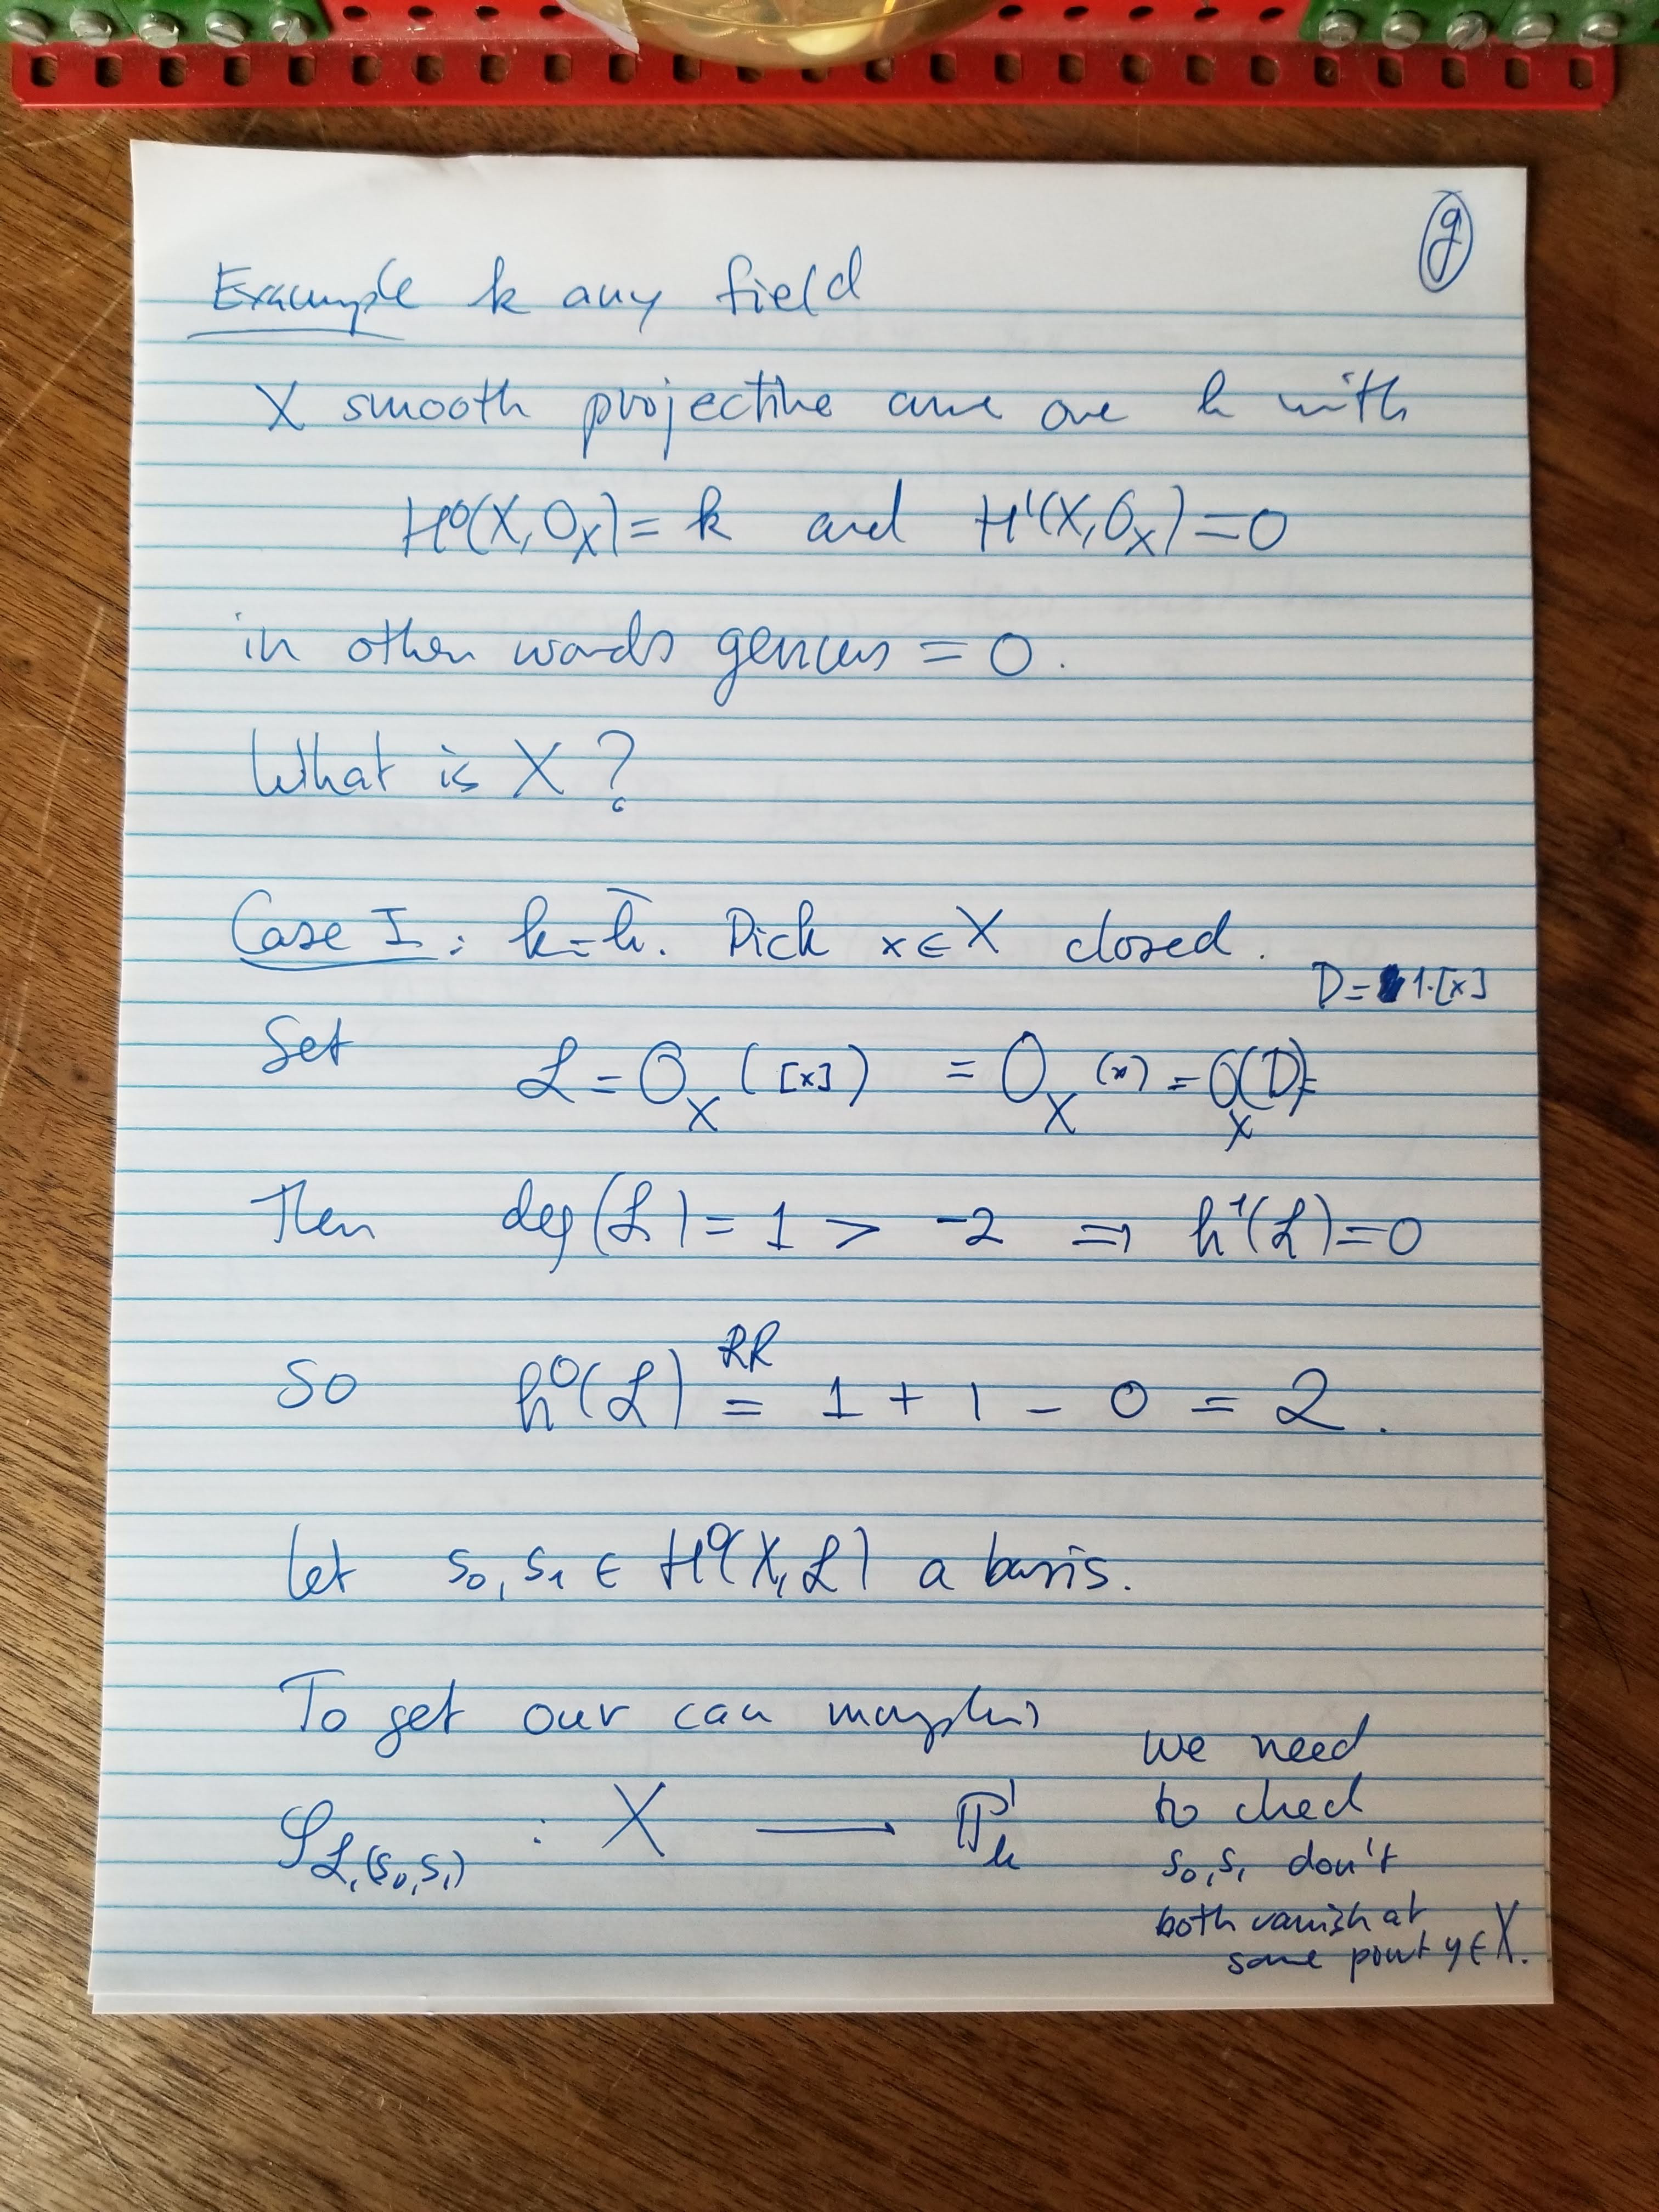 g
Example k any field
X smooth projective curve over k with
H⁰(X, O_X) = k and H¹(X, O_X) = 0
in other words genus = 0.
What is X?
Case I: k = k̄. Pick x ∈ X closed.
D = 1·[x]
Set L = O_X([x]) = O_X(x) = O_X(D) =
Then deg(L) = 1 > -2 ⇒ h¹(L) = 0
RR
So h⁰(L) = 1 + 1 - 0 = 2.
Let s₀, s₁ ∈ H⁰(X, L) a basis.
To get our can morphism
we need
φ_{L,(s₀,s₁)} : X — P¹_k
to check
s₀, s₁ don't
both vanish at
some point y ∈ X.